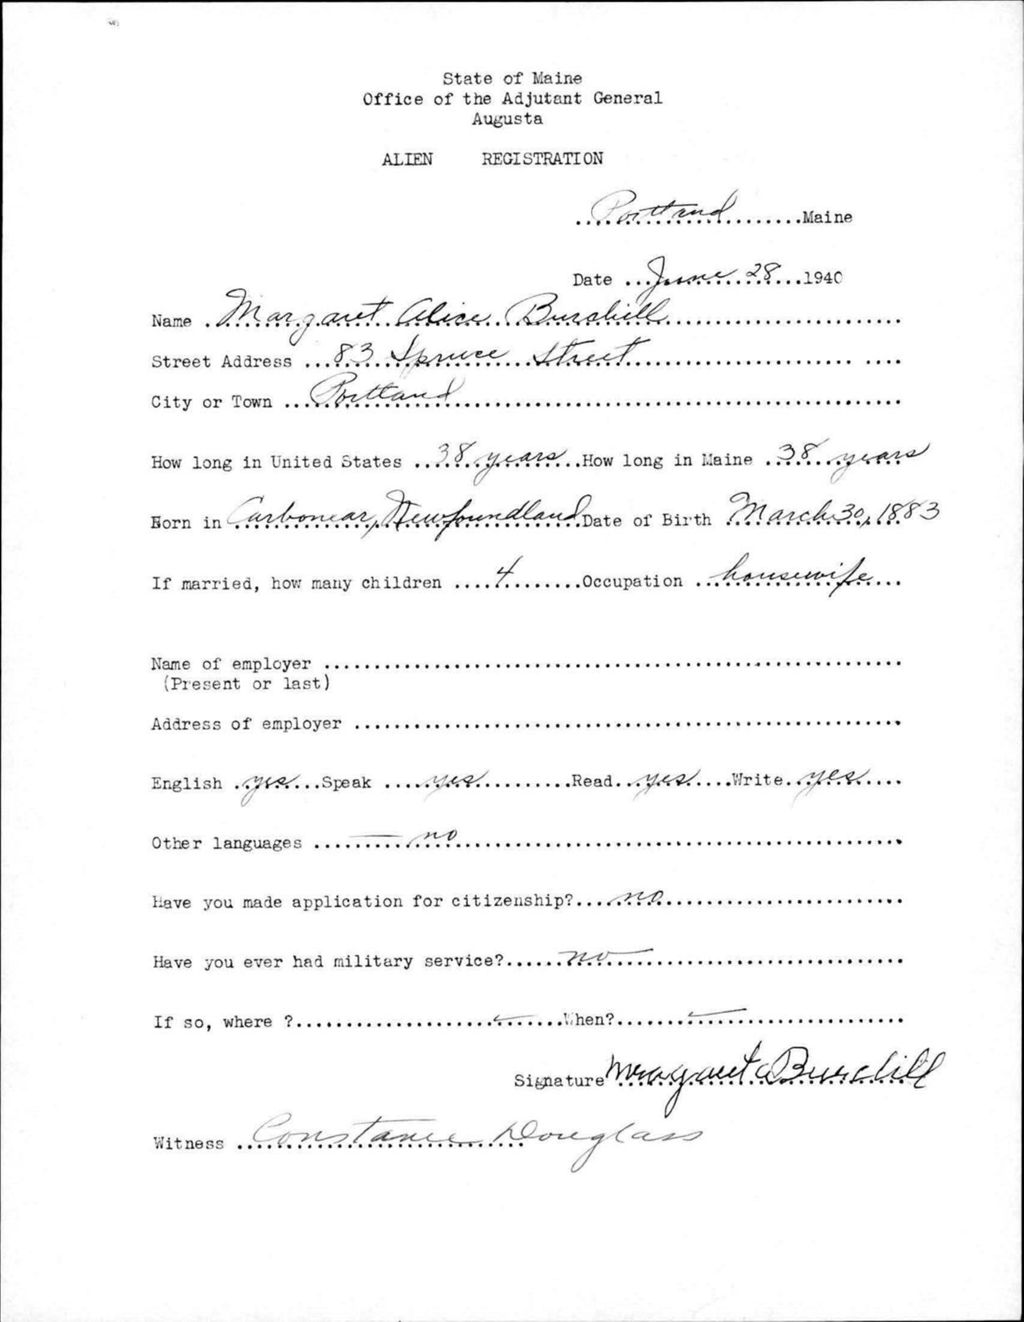 State of Maine
Office of the Adjutant General
Augusta
ALIEN REGISTRATION
Portland Maine
Date June 28 1940
Name Margaret Alice Burchill
Street Address 83 Spruce Street
City or Town Portland
How long in United States 38 years How long in Maine 38 years
Born in Carbonear, Newfoundland Date of Birth March 30, 1883
If married, how many children 4 Occupation housewife
Name of employer
(Present or last)
Address of employer
English yes Speak yes Read yes Write yes
Other languages no
Have you made application for citizenship? no
Have you ever had military service? no
If so, where ? When?
Signature Margaret A Burchill
Witness Constance Douglass